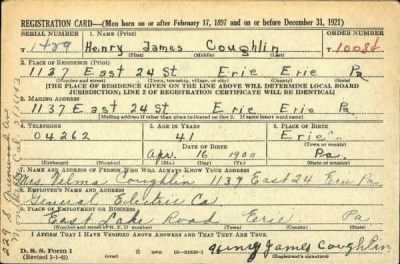 REGISTRATION CARD—(Men born on or after February 17, 1897 and on or before December 31, 1921)
SERIAL NUMBER 1. NAME (Print) ORDER NUMBER
1429 Henry James Coughlin 10084
(First) (Middle) (Last)
2. PLACE OF RESIDENCE (Print)
1137 East 24 St Erie Erie Pa
(Number and street) (Town, township, village, or city) (County) (State)
[THE PLACE OF RESIDENCE GIVEN ON THE LINE ABOVE WILL DETERMINE LOCAL BOARD
JURISDICTION; LINE 2 OF REGISTRATION CERTIFICATE WILL BE IDENTICAL]
3. MAILING ADDRESS
1137 East 24 St Erie Erie Pa
[Mailing address if other than place indicated on line 2. If same insert word same]
4. TELEPHONE 5. AGE IN YEARS 6. PLACE OF BIRTH
04262 41 Erie
DATE OF BIRTH
Apr. 16 1900 Pa.
(Exchange) (Number) (Mo.) (Day) (Yr.) (State or country)
7. NAME AND ADDRESS OF PERSON WHO WILL ALWAYS KNOW YOUR ADDRESS
Mrs Velma Coughlin 1137 East 24 Erie Pa
8. EMPLOYER'S NAME AND ADDRESS
General Electric Co.
9. PLACE OF EMPLOYMENT OR BUSINESS
East Lake Road Erie Pa
(Number and street or R. F. D. number) (Town) (County) (State)
I AFFIRM THAT I HAVE VERIFIED ABOVE ANSWERS AND THAT THEY ARE TRUE.
D. S. S. Form 1
(Revised 1-1-42) Henry James Coughlin
(Registrant's signature)